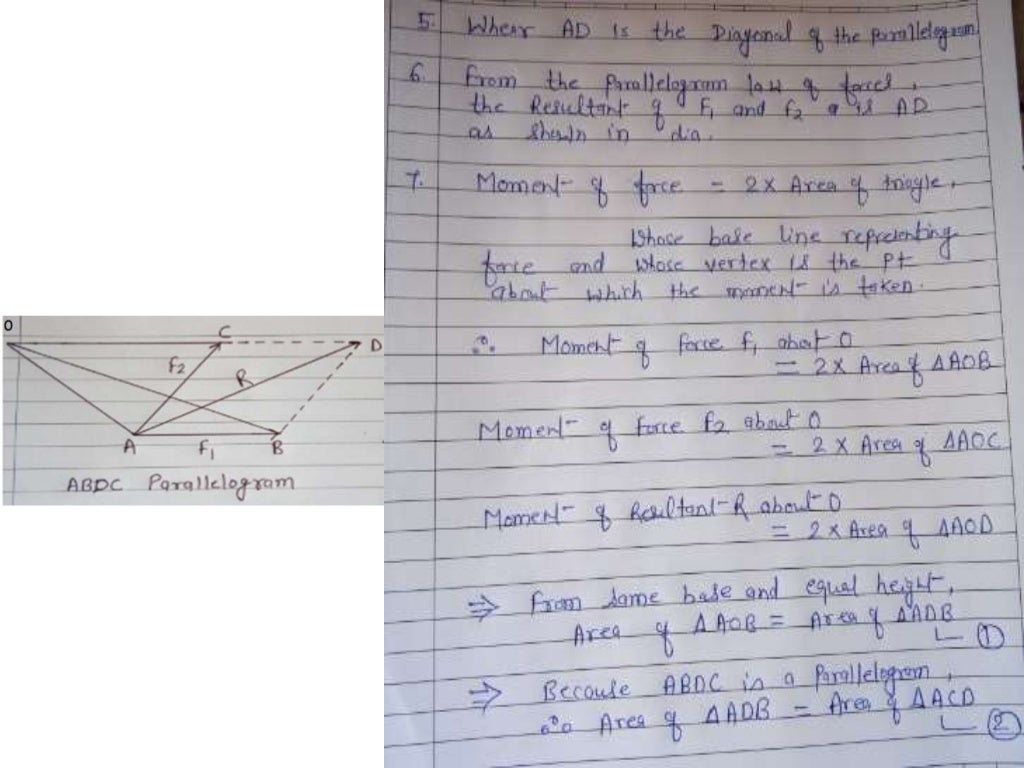 O
C
D
F2
R
A
F1
B
ABDC Parallelogram
5. Whear AD is the Diagonal of the parallelogram.
6. From the Parallelogram law of forces,
the Resultant of F1 and F2 is AD
as shown in dia.
7. Moment of force = 2x Area of triangle,
Whose base line representing
force and whose vertex is the Pt
about which the moment is taken.
∴ Moment of force F1 about O
= 2x Area of ΔAOB
Moment of force F2 about O
= 2 x Area of ΔAOC
Moment of Resultant R about O
= 2x Area of ΔAOD
⇒ From same base and equal height,
Area of ΔAOB = Area of ΔADB
(1)
⇒ Because ABDC is a Parallelogram,
∴ Area of ΔADB = Area of ΔACD
(2)